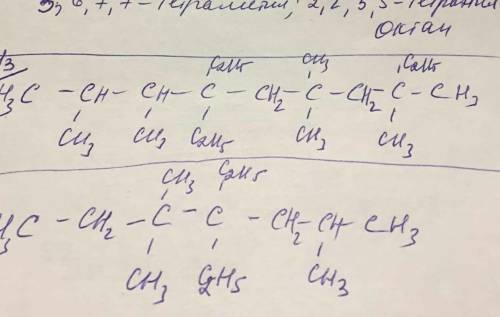 6, 7, 7 - тетраметил, 2, 2, 5, 5 - тетраэтил
октан
H3C - CH - CH - C - CH2 - C - CH2 - C - CH3
C2H5 CH3 C2H5
CH3 CH3 C2H5 CH3 CH3
CH3 C2H5
H3C - CH2 - C - C - CH2 - CH - CH3
CH3 C2H5 CH3